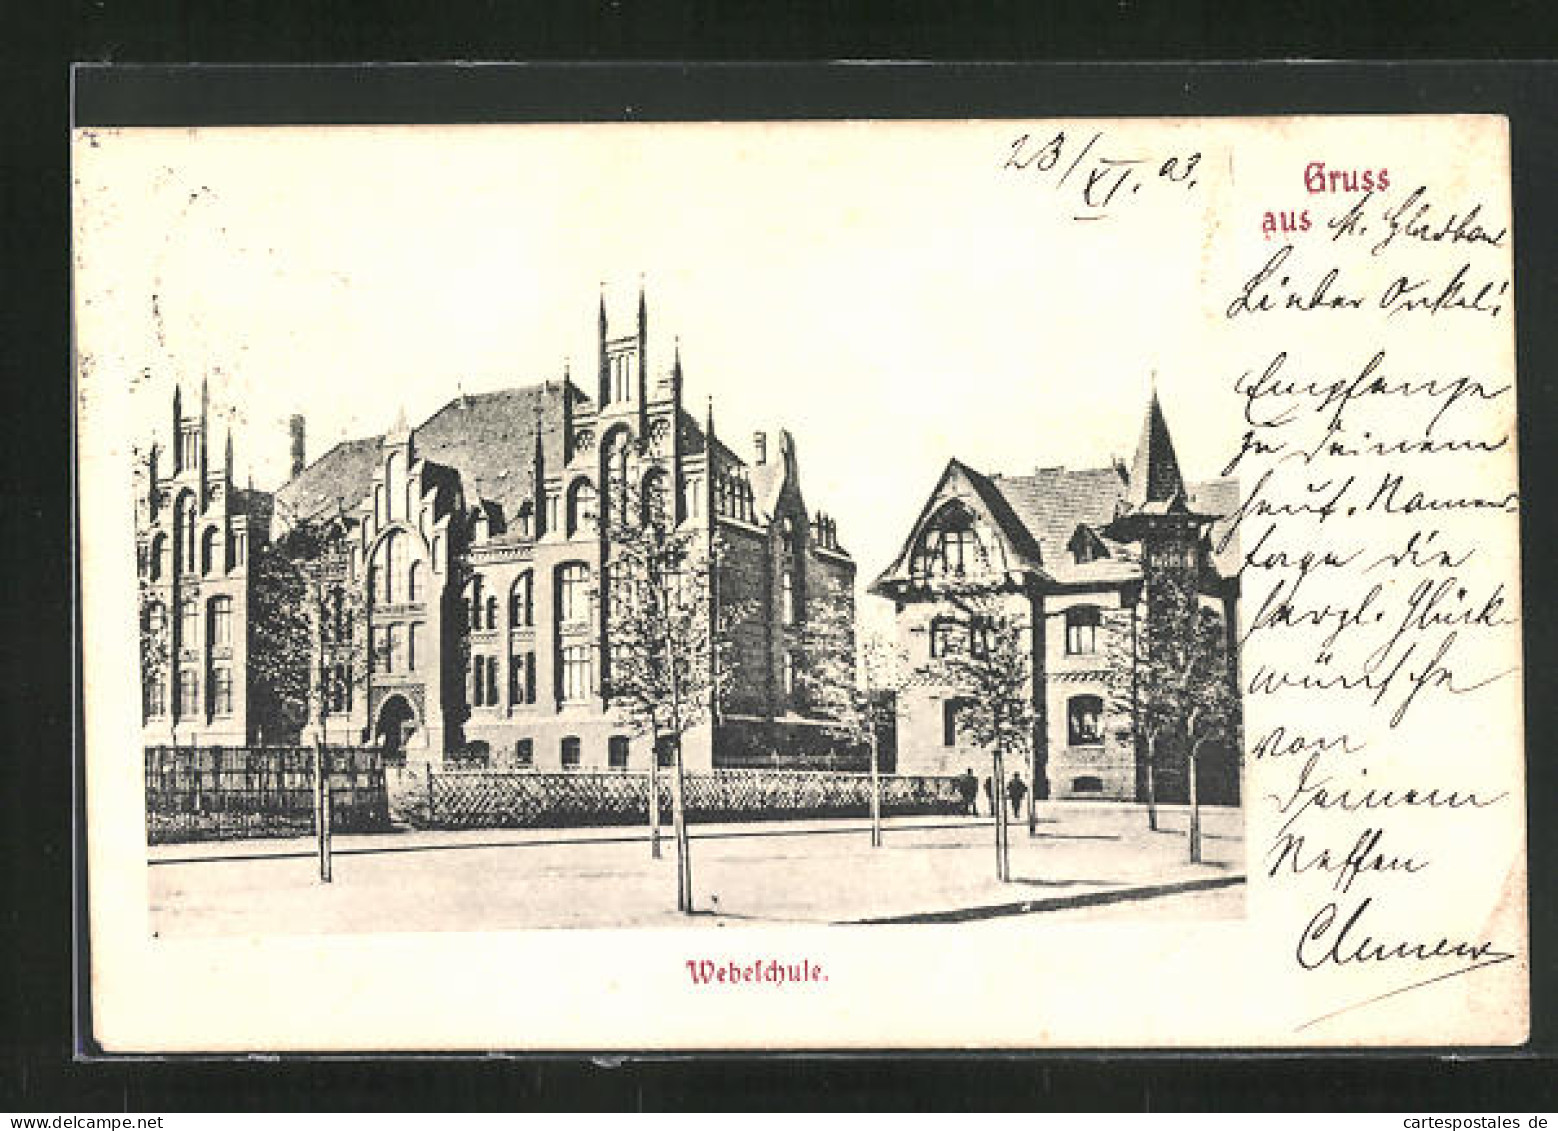 23/XI. 03.
Gruss
aus M. Gladbach
Lieber Onkel!
Empfange
zu Deinem
heut. Namens
tage die
herzl. Glück-
wünsche
von
Deinem
Neffen
Clemens
Webeschule.
cartespostales de